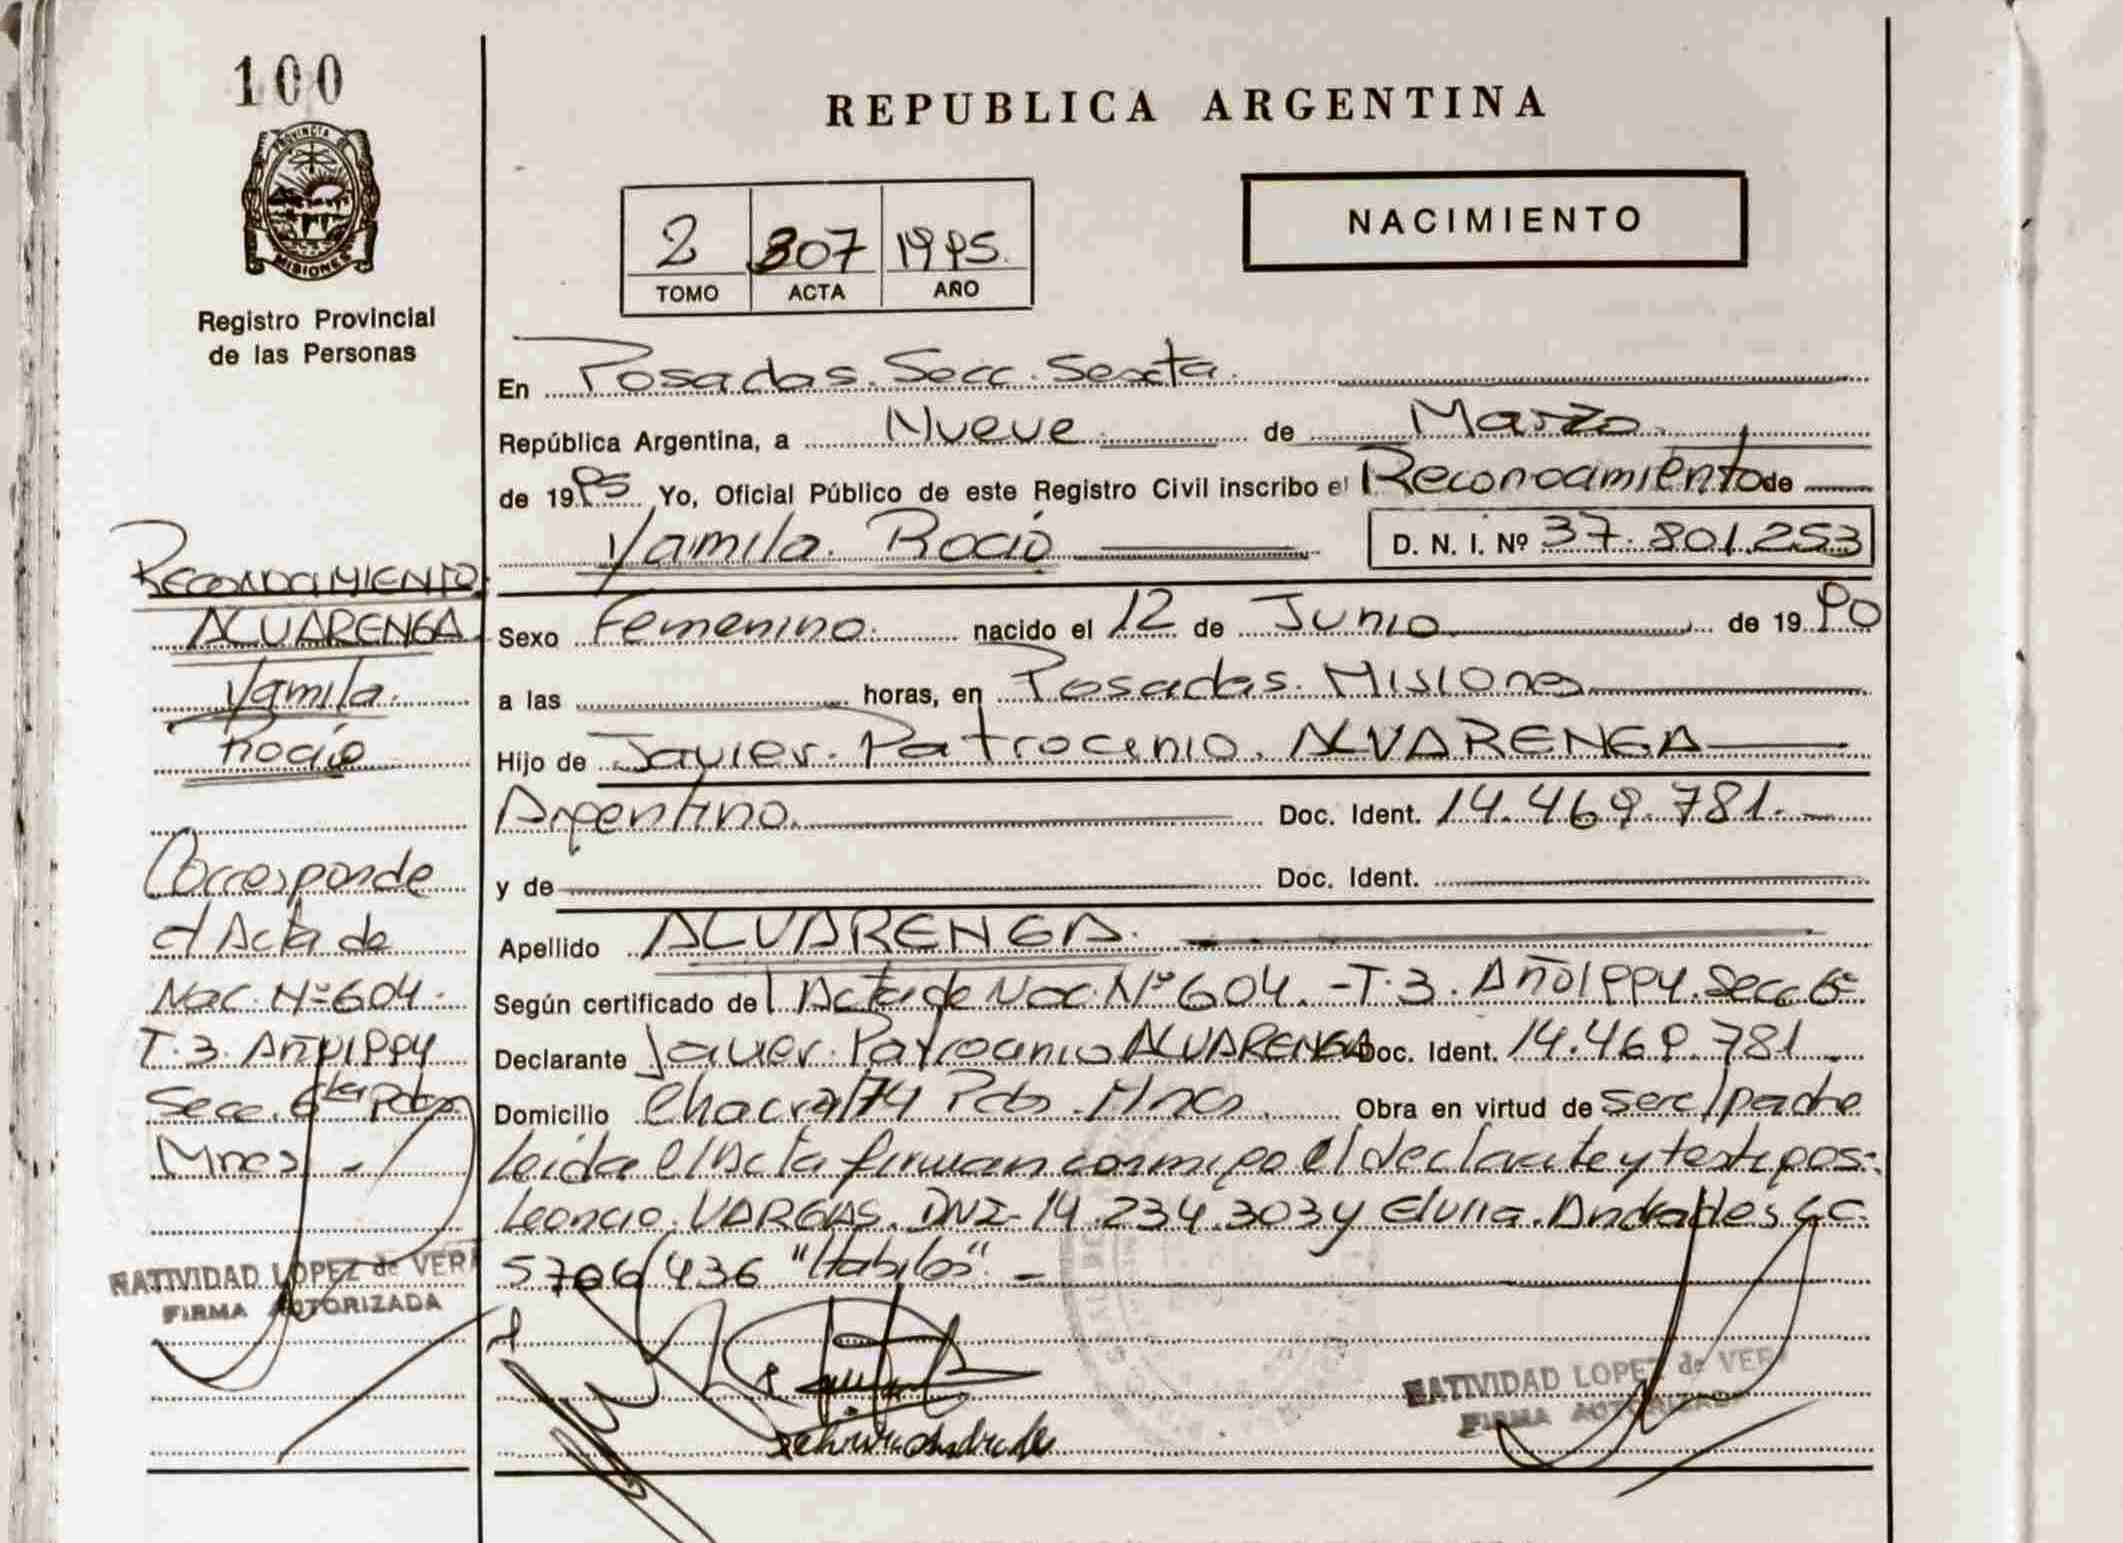 100
PROVINCIA DE
MISIONES
Registro Provincial
de las Personas
REPUBLICA ARGENTINA
NACIMIENTO
2 307 1995.
TOMO ACTA AÑO
En Posadas. Secc. Sexta.
República Argentina, a Nueve de Marzo.
de 1995 Yo, Oficial Público de este Registro Civil inscribo el Reconocimiento de
Yamila. Rocio D. N. I. Nº 37.801.253
Sexo Femenino. nacido el 12 de Junio de 1990
a las horas, en Posadas. Misiones
Hijo de Javier. Patrocinio. ALVARENGA
Argentino. Doc. Ident. 14.469.781.
y de Doc. Ident.
Apellido ALVARENGA.
Según certificado del Acta de Nac. Nº 604. - T.3. Año 1994. Secc 6ª
Declarante Javier. Patrocinio ALVARENGA Doc. Ident. 14.469.781.
Domicilio Chacra 174 Pdas. Mnes. Obra en virtud de ser c/ padre
Leida el Acta firman conmigo el declarante y testigos:
Leoncio. VARGAS. DNI- 14.234.303 y Elvira. Andrades LC.
5706436 "Habiles". -
RECONOCIMIENTO.
ALVARENGA
Yamila.
Rocio
Corresponde
al Acta de
Nac. Nº 604.
T.3. Año 1994
Secc. 6ta Pdas
Mnes -
NATIVIDAD LOPEZ de VERA
FIRMA AUTORIZADA
NATIVIDAD LOPEZ de VERA
FIRMA AUTORIZADA